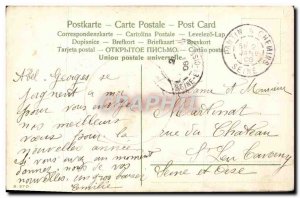 Postkarte - Carte Postale - Post Card
Correspondenzkarte - Cartolina Postale - Levelező-Lap
Dopisnice - Brefkort - Briefkaart - Brevkort
Tarjeta postal - ОТКРЫТОЕ ПИСЬМО - Dopisnica
Union postale universelle
Abel Georges se
joignent à moi
pour vous offrir
nos meilleurs
vœux pour la
nouvelle année
Si vous avez un moment
donnez-nous de vos
nouvelles, un gros baiser
Emilie
Madame et Monsieur
Martinat
rue du Château
St Leu Taverny
Seine et Oise